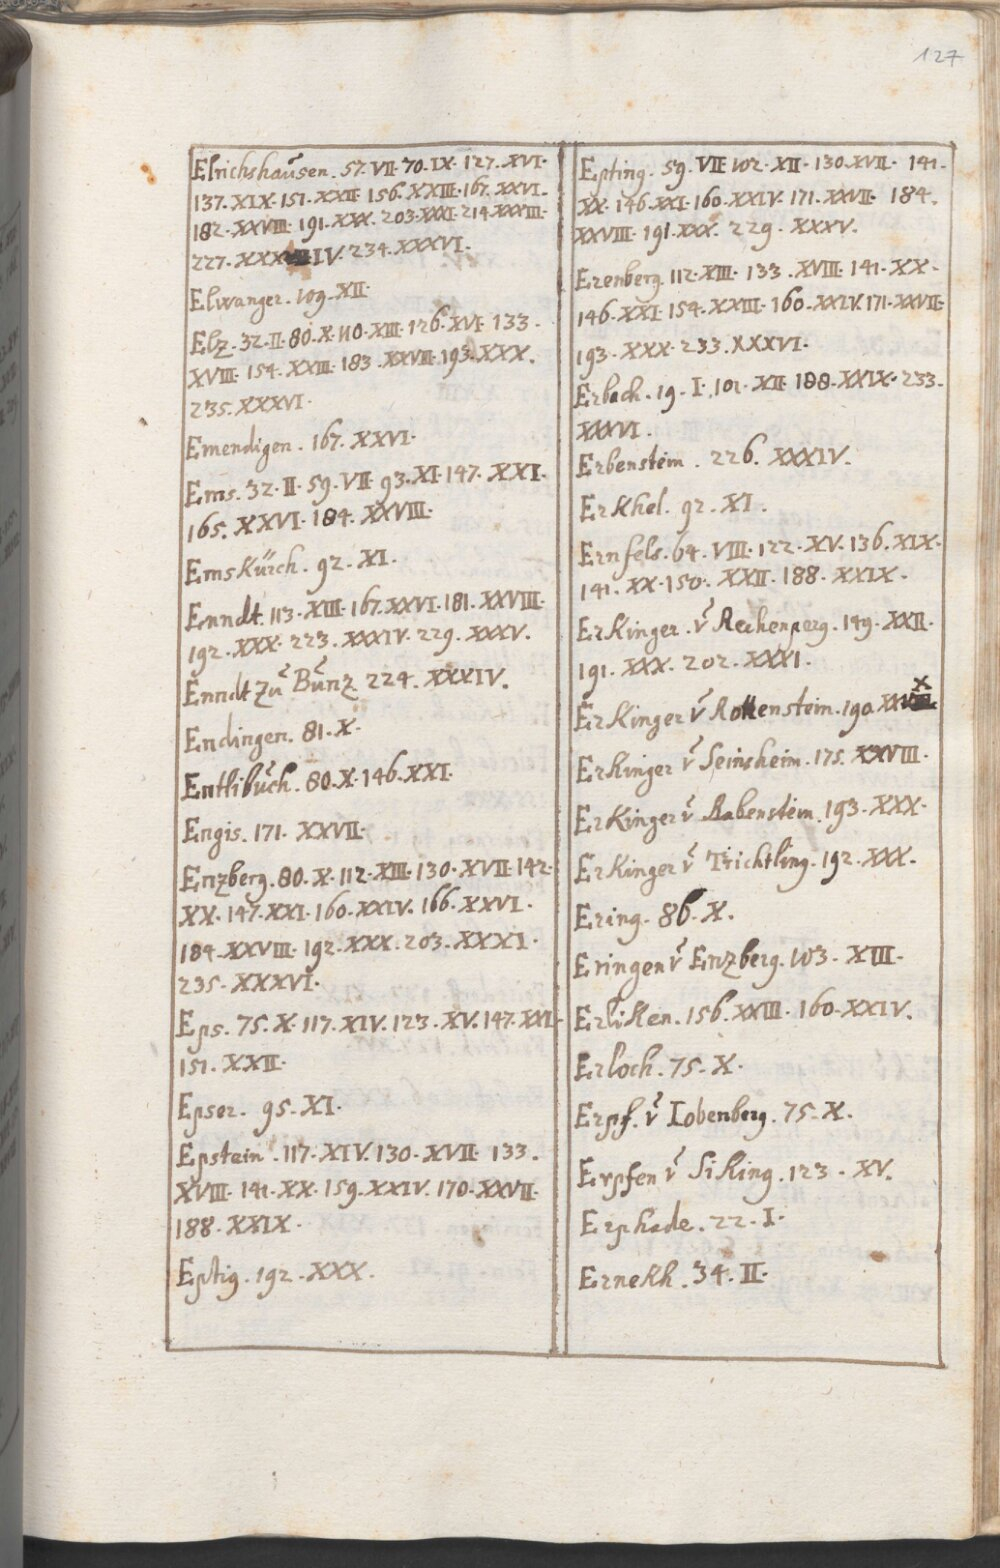 127
Elrichshausen. 57. VII. 70. IX. 127. XVI.
137. XIX. 151. XXII. 156. XXIII. 167. XXVI.
182. XXVIII. 191. XXX. 203. XXXI. 214. XXXIII.
227. XXXIV. 234. XXXVI.
Elwanger. 109. XII.
Elz. 32. II. 80. X. 110. XIII. 126. XVI. 133.
XVIII. 154. XXIII. 183. XXVIII. 193. XXX.
235. XXXVI.
Emendigen. 167. XXVI.
Ems. 32. II. 59. VII. 93. XI. 147. XXI.
165. XXVI. 184. XXVIII.
EmsKürch. 92. XI.
Enndt. 113. XIII. 167. XXVI. 181. XXVIII.
192. XXX. 223. XXXIV. 229. XXXV.
Enndt zu Bunz. 224. XXXIV.
Endingen. 81. X.
Entlibuch. 80. X. 146. XXI.
Engis. 171. XXVII.
Enzberg. 80. X. 112. XIII. 130. XVII. 142.
XX. 147. XXI. 160. XXIV. 166. XXVI.
184. XXVIII. 192. XXX. 203. XXXI.
235. XXXVI.
Eps. 75. X. 117. XIV. 123. XV. 147. XXI.
151. XXII.
Epser. 95. XI.
Epstein. 117. XIV. 130. XVII. 133.
XVIII. 141. XX. 159. XXIV. 170. XXVII.
188. XXIX.
Eptig. 192. XXX.
Epting. 59. VII. 102. XII. 130. XVII. 141.
XX. 146. XXI. 160. XXIV. 171. XXVII. 184.
XXVIII. 191. XXX. 229. XXXV.
Erenberg. 112. XIII. 133. XVIII. 141. XX.
146. XXI. 154. XXIII. 160. XXIV. 171. XXVII.
193. XXX. 233. XXXVI.
Erbach. 19. I. 101. XII. 188. XXIX. 233.
XXXVI.
Erbenstein. 226. XXXIV.
ErKhel. 92. XI.
Ernfels. 64. VIII. 122. XV. 136. XIX.
141. XX. 150. XXII. 188. XXIX.
ErKinger. v Rechenperg. 149. XXII.
191. XXX. 202. XXXI.
ErKinger v Rottenstein. 190. XXX
ErKinger v Seinsheim. 175. XXVIII.
ErKinger v Rabenstein. 193. XXX.
ErKinger v Trichtling. 192. XXX.
Ering. 86. X.
Eringen v Enzberg. 103. XIII.
ErliKen. 156. XXIII. 160. XXIV.
Erloch. 75. X.
Erpf. v Lobenberg. 75. X.
Erpfen v SiKing. 123. XV.
Erphade. 22. I.
ErneKh. 34. II.